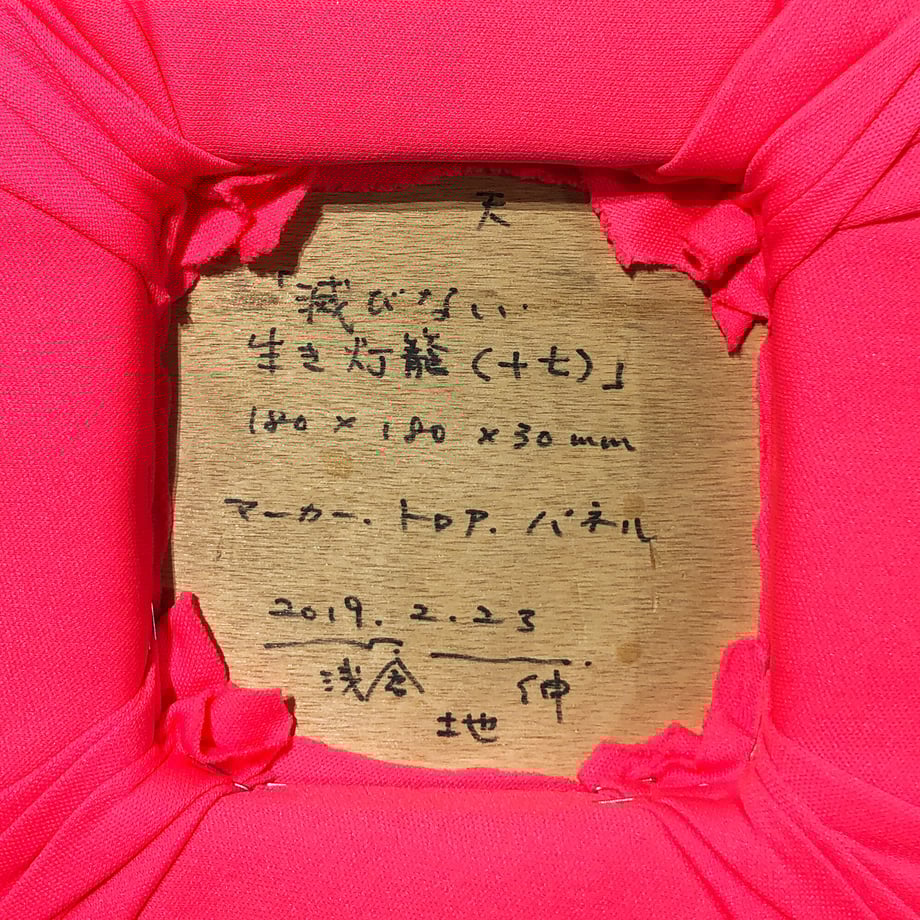 天
「滅びない
生き灯籠(十七)」
180 × 180 × 30 mm
マーカー. トロマ. パネル
2019. 2. 23
浅倉 伸
地